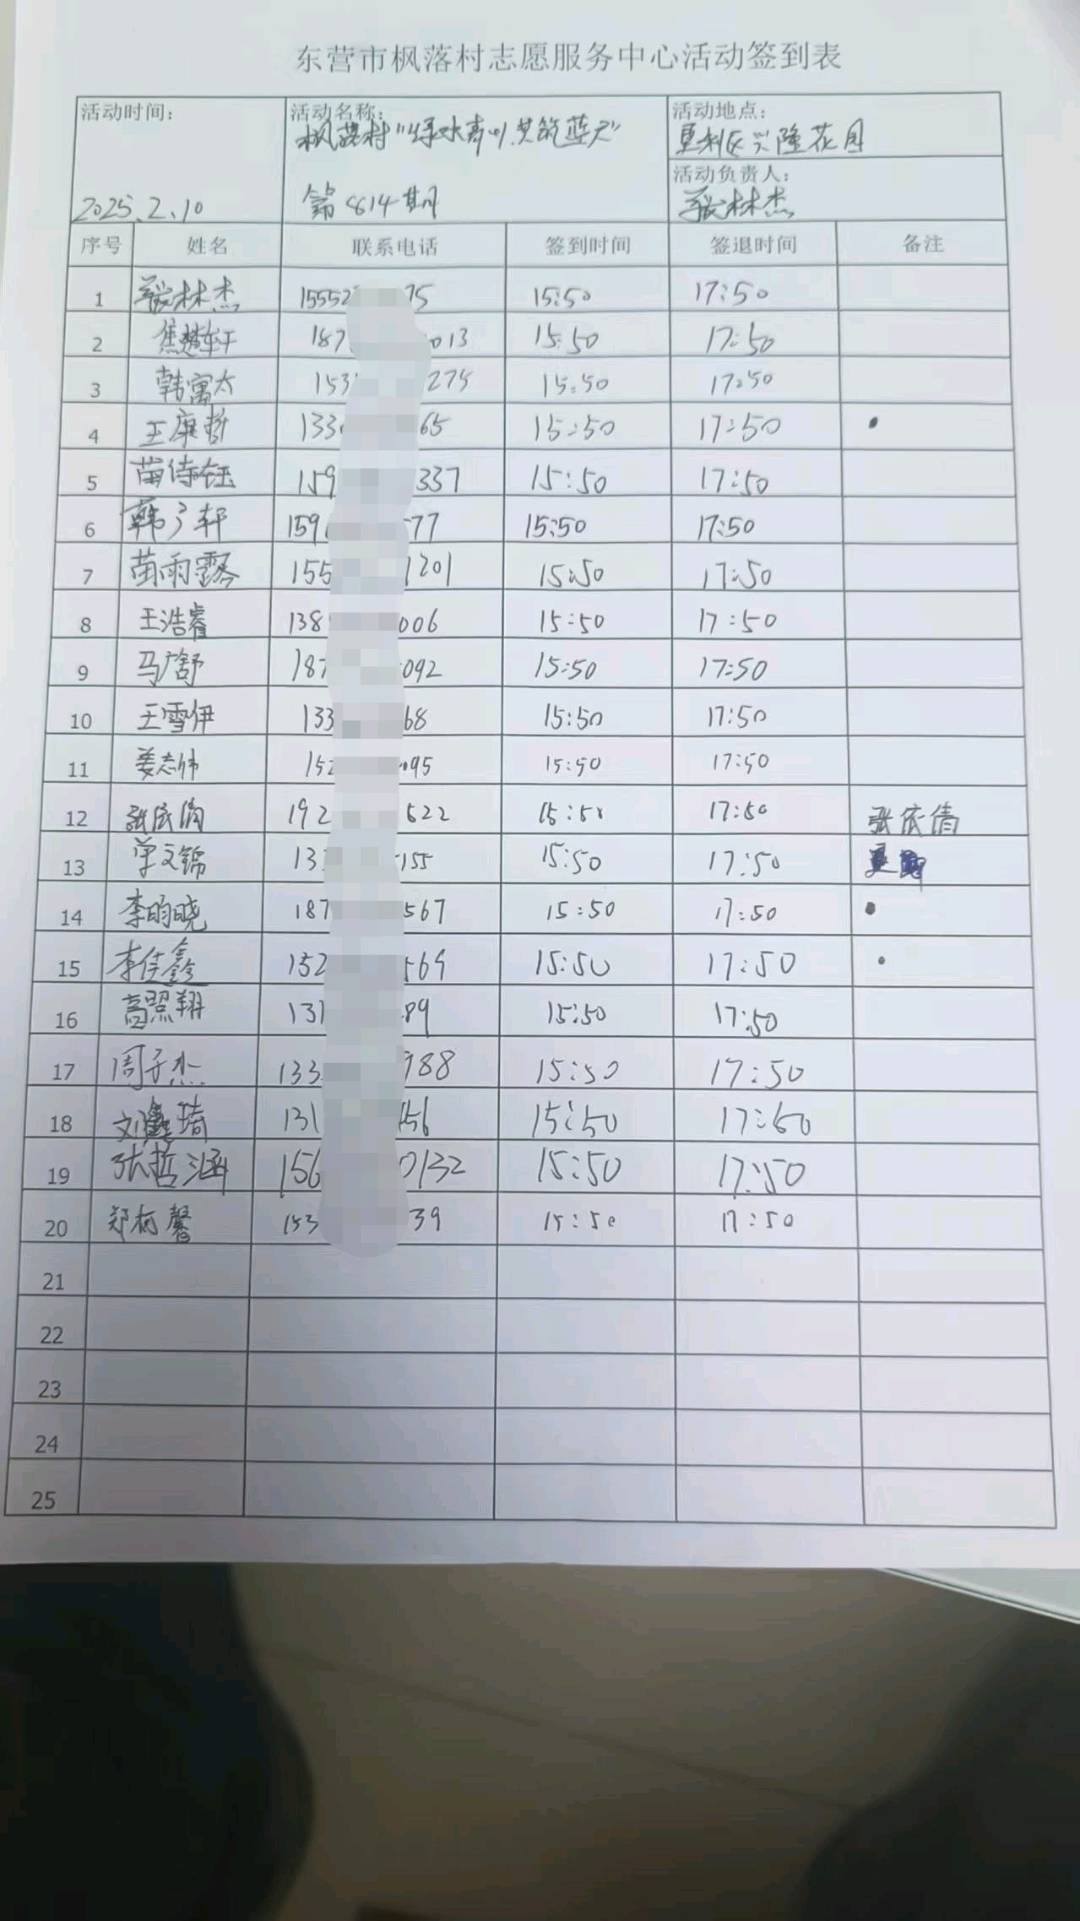 东营市枫落村志愿服务中心活动签到表
活动时间： 活动名称： 活动地点：
枫落村"绿水青山,共筑蓝天" 垦利区兴隆花园
活动负责人：
2025.2.10 第 614期 林杰
序号 姓名 联系电话 签到时间 签退时间 备注
1 林杰 15552 75 15:50 17:50
2 焦楚轩 187 013 15:50 17:50
3 韩寓太 153 275 15:50 17:50
4 王康哲 133 65 15:50 17:50
5 苗诗钰 159 337 15:50 17:50
6 韩子轩 159 77 15:50 17:50
7 苗雨露 155 1201 15:50 17:50
8 王浩睿 138 006 15:50 17:50
9 马广舒 187 092 15:50 17:50
10 王雪伊 133 68 15:50 17:50
11 姜志伟 152 095 15:50 17:50
12 张依倩 192 622 15:50 17:50 张依倩
13 文锦 13 155 15:50 17:50
14 李昀晓 187 567 15:50 17:50
15 李佳鑫 152 569 15:50 17:50
16 高照翔 131 89 15:50 17:50
17 周子杰 133 988 15:50 17:50
18 刘 琦 131 456 15:50 17:50
19 张哲涵 156 0132 15:50 17:50
20 郑柯馨 153 39 15:50 17:50
21
22
23
24
25